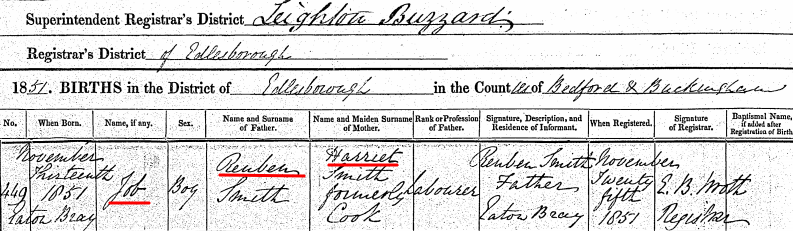 Superintendent Registrar's District Leighton Buzzard
Registrar's District of Edlesborough
1851. BIRTHS in the District of Edlesborough in the Counties of Bedford & Buckingham
No. When Born. Name, if any. Sex. Name and Surname of Father. Name and Maiden Surname of Mother. Rank or Profession of Father. Signature, Description, and Residence of Informant. When Registered. Signature of Registrar. Baptismal Name, if added after Registration of Birth
449 November Thirteenth 1851 Eaton Bray Job Boy Reuben Smith Harriet Smith formerly Cook Labourer Reuben Smith Father Eaton Bray November Twenty fifth 1851 E. B. Wroth Registrar